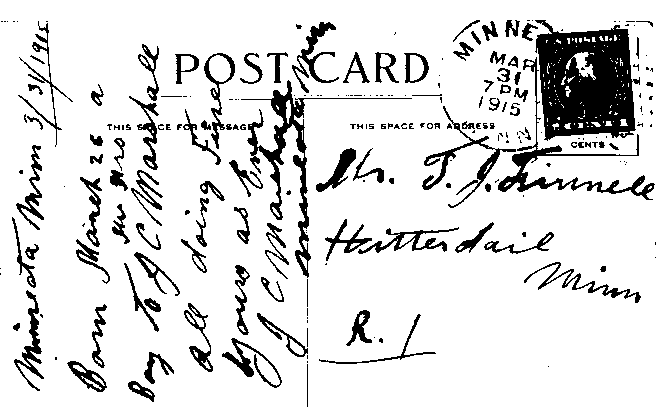 POST CARD
THIS SPACE FOR MESSAGE
THIS SPACE FOR ADDRESS
MINNE
MAR
31
7 PM
1915
MINN
U.S. POSTAGE
CENTS
Minneota Minn 3/31/1915
Born March 26 a
Boy to J C Marshall
all doing Fine
yours as Ever
J C Marshall
Minneota Minn
Mr. T. J. Finnell
Hitterdail
Minn
R. 1